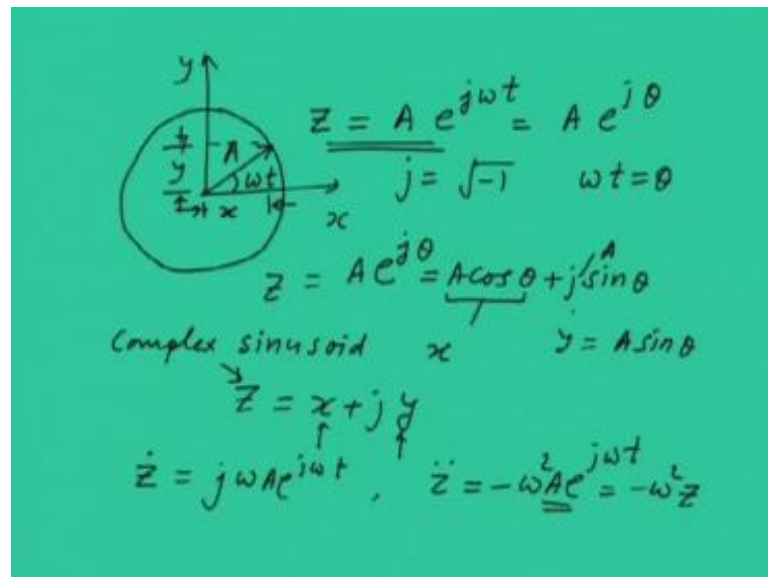 y
Z = A e^{jωt} = A e^{jθ}
A
y
ωt
j = √-1 ωt = θ
x
x
Z = A e^{jθ} = A cos θ + j A sin θ
Complex sinusoid x y = A sin θ
Z = x + j y
ż = jωA e^{jωt} , z̈ = -ω²A e^{jωt} = -ω² z